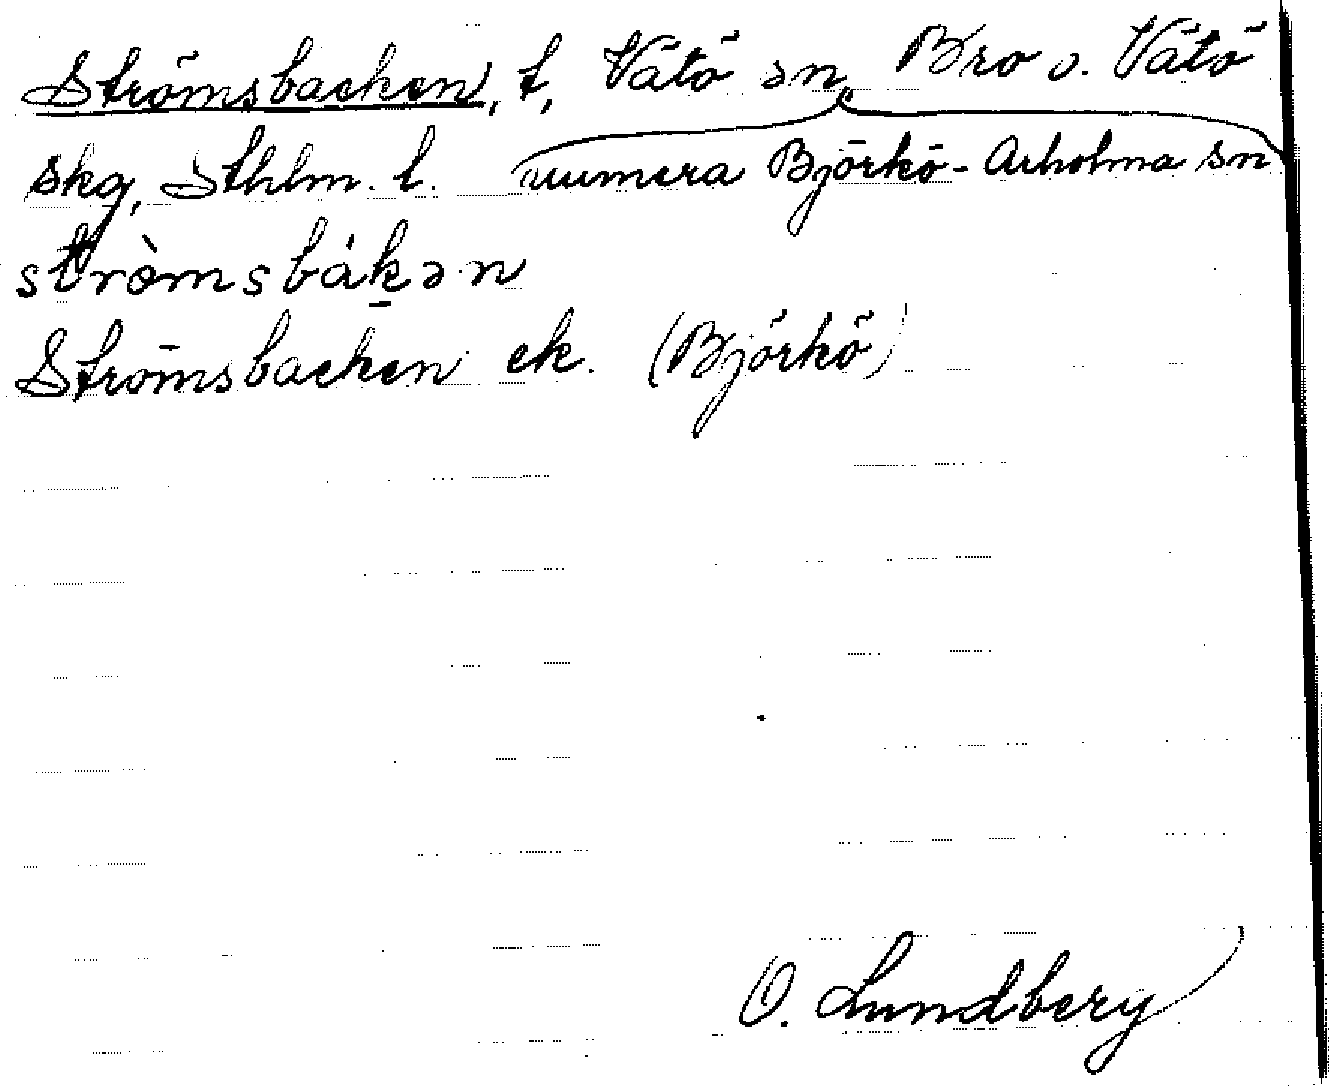 Strömsbacken, t, Vätö sn, Bro o. Vätö
skg, Sthlm. l. numera Björkö-Arholma sn
strὼmsbákən
Strömsbacken ek. (Björkö)
O. Lundberg